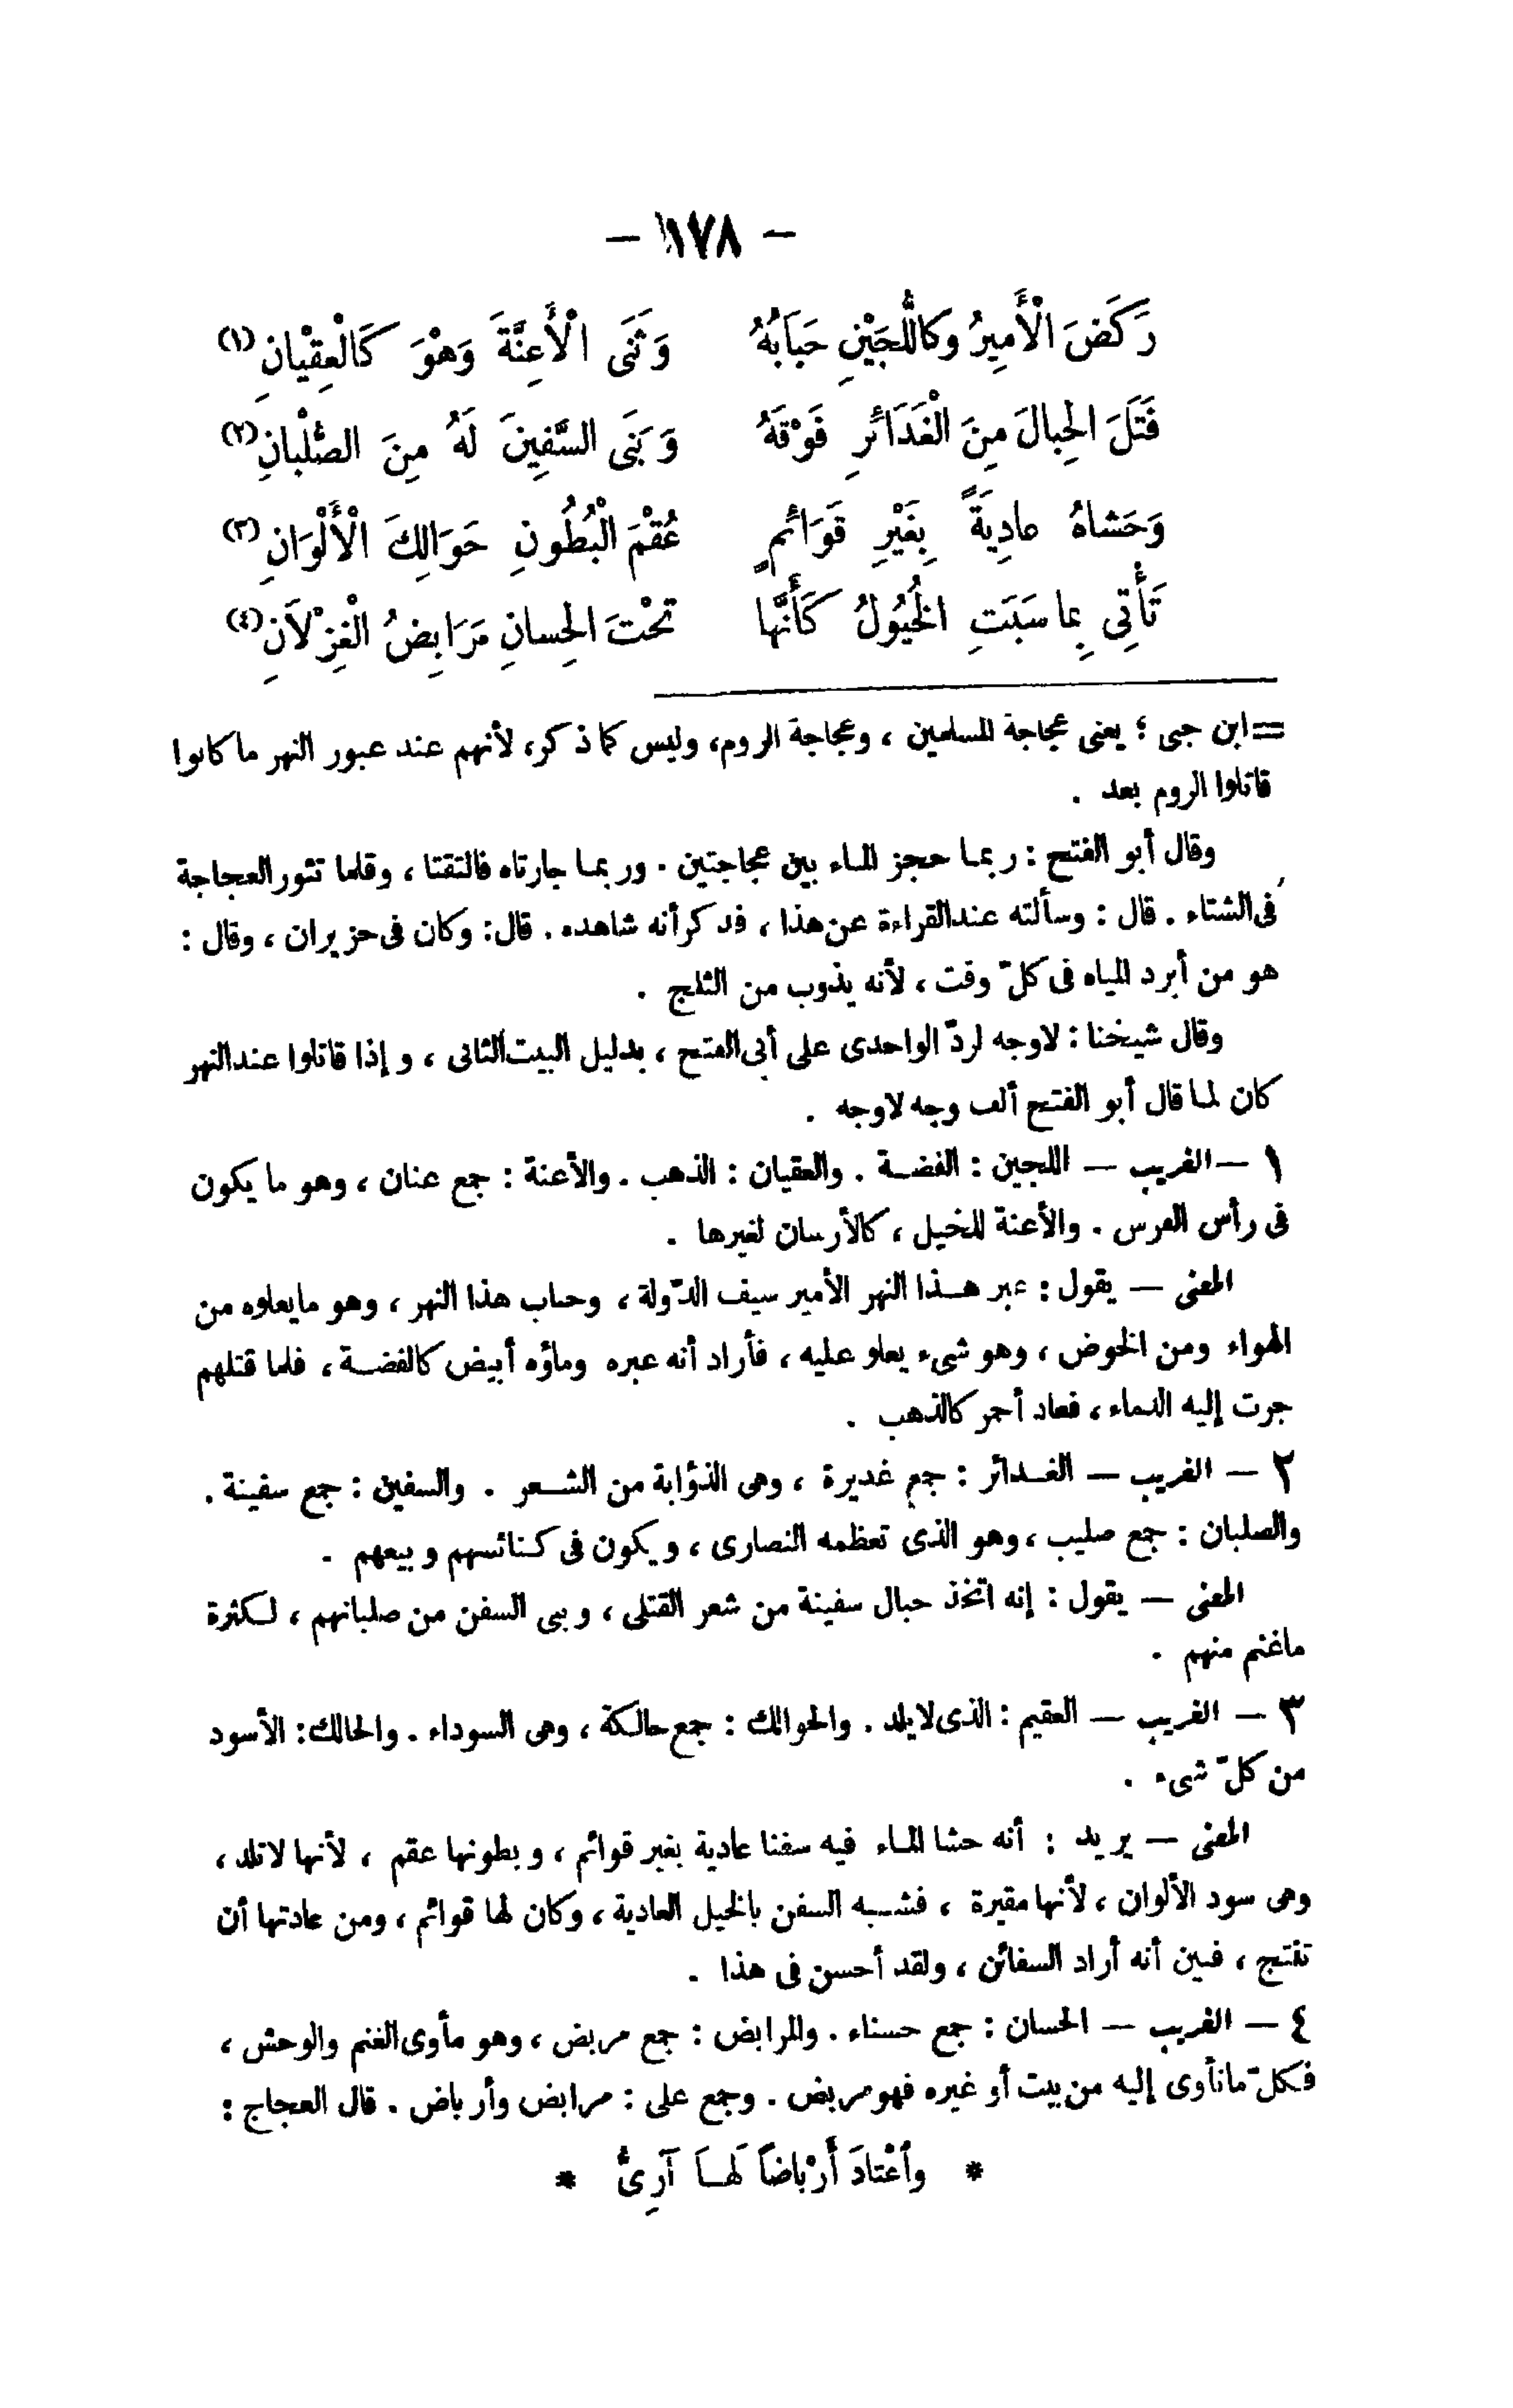 — ١٧٨ —
رَكَضَ الْأَمِيرُ وكاللُّجَيْنِ حَبَابُهُ وَثَنَى الْأَعِنَّةَ وَهْوَ كَالْعِقْيانِ (١)
فَتَلَ الْحِبالَ مِنَ الْغَدَائرِ فَوْقَهُ وَبَنَى السَّفِينَ لَهُ مِنَ الصُّلْبانِ (٢)
وَحَشاهُ عادِيَةً بِغَيْرِ قَوَائمٍ عُقْمَ الْبُطُونِ حَوَالِكَ الْأَلْوَانِ (٣)
تَأْتِى بِما سَبَتِ الخُيُولُ كَأَنَّها تَحْتَ الحِسانِ مَرَابِضُ الْغِزْلاَنِ (٤)
= ابن جنى ؛ يعنى عجاجة المسلمين ، وعجاجة الروم، وليس كما ذكر، لأنهم عند عبور النهر ما كانوا
قاتلوا الروم بعد .
وقال أبو الفتح : ربما حجز الماء بين عجاجتين . وربما جازتاه فالتقتا ، وقلما تثور العجاجة
فى الشتاء . قال : وسألته عند القراءة عن هذا ، فذكر أنه شاهده . قال: وكان فى حزيران ، وقال :
هو من أبرد المياه فى كلّ وقت ، لأنه يذوب من الثلج .
وقال شيخنا : لاوجه لردّ الواحدى على أبى الفتح ، بدليل البيت الثانى ، و إذا قاتلوا عند النهر
كان لما قال أبو الفتح ألف وجه لاوجه .
١ — الغريب — اللجين : الفضـة . والعقيان : الذهب . والأعنة : جمع عنان ، وهو ما يكون
فى رأس الفرس . والأعنة للخيل ، كالأرسان لغيرها .
المعنى — يقول : عبر هـذا النهر الأمير سيف الدّولة ، وحباب هذا النهر ، وهو ما يعلوه من
الهواء ومن الخوض ، وهو شىء يعلو عليه ، فأراد أنه عبره وماؤه أبيض كالفضـة ، فلما قتلهم
جرت إليه الدماء ، فعاد أحمر كالذهب .
٢ — الغريب — الغـدائر : جمع غديرة ، وهى الذؤابة من الشـعر . والسفين : جمع سفينة .
والصلبان : جمع صليب ، وهو الذى تعظمه النصارى ، ويكون فى كنائسهم وبيعهم .
المعنى — يقول : إنه اتخذ حبال سفينة من شعر القتلى ، وبنى السفن من صلبانهم ، لـكثرة
ماغنم منهم .
٣ — الغريب — العقيم : الذى لايلد . والحوالك : جمع حالـكة ، وهى السوداء . والحالك: الأسود
من كلّ شىء .
المعنى — يريد : أنه حشا المـاء فيه سفنا عادية بغير قوائم ، و بطونها عقم ، لأنها لاتلد ،
وهى سود الألوان ، لأنها مقيرة ، فشـبه السفن بالخيل العادية ، وكان لها قوائم ، ومن عادتها أن
تنتج ، فبين أنه أراد السفائن ، ولقد أحسن فى هذا .
٤ — الغريب — الحسان : جمع حسناء . والمرابض : جمع مربض ، وهو مأوى الغنم والوحش ،
فـكلّ ماتأوى إليه من بيت أو غيره فهو مربض . وجمع على : مرابض وأرباض . قال العجاج :
* وأعْتادَ أَرْباضاً لَهـا آرِىُّ *